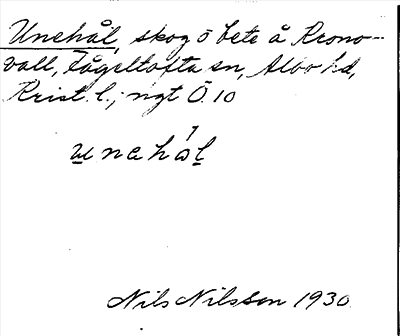 Unehål, skog o bete å Krono-
vall, Fågeltofta sn, Albo hd,
Krist. l.; ngt Ö. 10
unehål
Nils Nilsson 1930